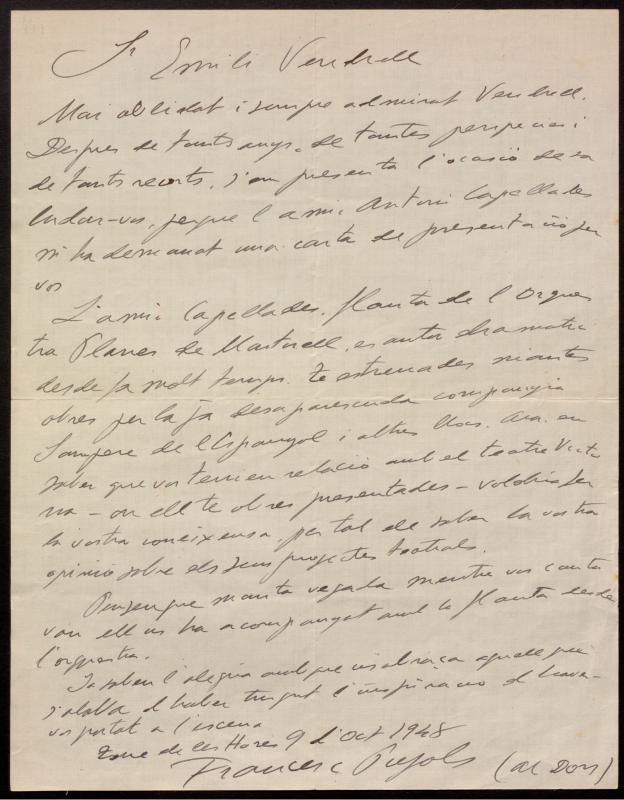 Sr Emili Vendrell
Mai oblidat i sempre admirat Vendrell.
Despres de tants anys, de tantes peripecies i
de tants recorts, s'em presenta l'ocasió de sa
ludar-vos, perque l'amic Antoni Capellades
m'ha demanat una carta de presentació per
vos
L'amic Capellades, flauta de l'Orques
tra Planes de Martorell, es autor dramatic
desde fa molt temps. Te estrenades mantes
obres per la ja desaparescuda companyia
Sampere de l'Espanyol i altres llocs. Ara, en
saber que vos teniu relació amb el teatre Victo
ria - on ell te obres presentades - voldria fer
la vostra coneixensa, per tal de saber la vostra
opinió sobre els seus projectes teatrals.
Penseu que manta vegada mentre vos canta
vau ell us ha acompanyat amb la flauta desde
l'orquestra.
Ja sabeu l'alegria amb que us abraça aquell qui
s'alaba d'haber tingut l'inspiració d'haver-
vos portat a l'escena
Torre de les Hores 9 d'Oct 1948
Francesc Pujols